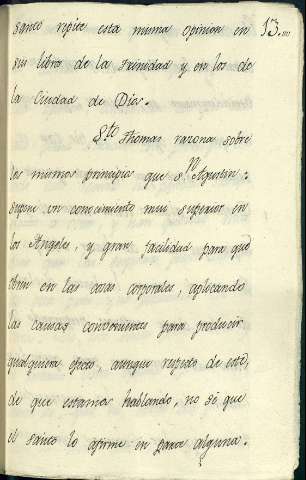 santo repite esta misma opinion en 13.
sus libros de la Trinidad y en los de
la Ciudad de Dios.
Sto Thomas razona sobre
los mismos principios que Sn Agustin:
supone un conocimiento mui superior en
los Angeles, y gran facilidad para que
obren en las cosas corporales, aplicando
las causas convenientes para producir
qualquiera efecto, aunque respeto de este,
de que estamos hablando, no sé que
el santo lo afirme en parte alguna.